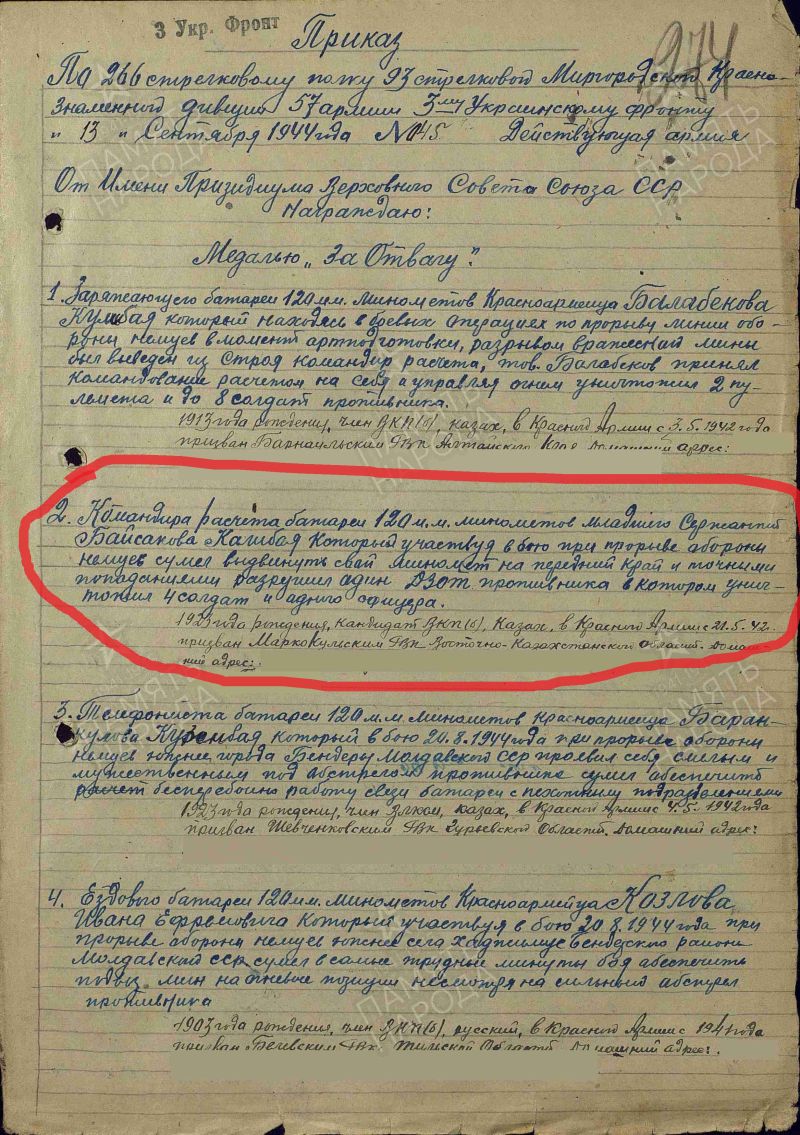 3 Укр. Фронт
Приказ
274
По 266 стрелковому полку 93 стрелковой Миргородской Красно-
знаменной дивизии 57 армии 3му Украинскому фронту
" 13 " Сентября 1944 года №045. Действующая армия
От Имени Призидиума Верховного Совета Союза ССР
Награждаю:
Медалью „За Отвагу".
1. Заряжающего батареи 120 мм. минометов Красноармейца Балабекова
который находясь в боевых операциях по прорыву линии обо-
роны немцев в момент артподготовки, разрывом вражеской мины
был выведен из строя командир расчета, тов. Балабеков принял
командование расчетом на себя и управляя огнем уничтожил 2 пу-
лемета и до 8 солдат противника.
1913 года рождения, член ВКП(б), казах, в Красной Армии с 3.5.1942 года
призван Барнаульским РВК Алтайского Края Домашний адрес:
2. Командира расчета батареи 120 м.м. минометов младшего Сержанта
Байсакова Который участвуя в бою при прорыве обороны
немцев сумел выдвинуть свой миномет на передний Край и точными
попаданиеми разрушил один ДЗОТ противника в котором унич-
тожил 4 солдат и одного офицера.
1923 года рождения, кандидат ВКП(б), Казах, в Красной Армии с 21.5.42г.
призван МаркоКульским РВК Восточно-Казахстанской Област. Домаш-
ний адрес:
3. Телефониста батареи 120 м.м. минометов Красноармейца Баран-
кулова который в бою 20.8.1944 года при прорыве обороны
немцев южнее города Бендеры Молдавской ССР проевил себя смелым и
мужественным под обстрелом противника сумел обеспечить
бесперебойно работу связи батареи с пехотными подразделениями
1923 года рождения, член ВЛКСМ, казах, в Красной Армии с 4.5.1942 года
призван Шевченковским РВК Гурьевской Област. Домашний адрес:
4. Ездового батареи 120 мм. минометов Красноармейца Козлова
Ивана Ефремовича Который участвуя в бою 20 8.1944 года при
прорыве обороны немцев южнее села Бендерского района
Молдавской ССР сумел в самые трудные минуты боя обеспечить
подвоз мин на огневые позиции несмотря на сильный обстрел
противника
1903 года рождения, член ВКП(б), русский, в Красной Армии с 1941 года
призван Белевским РВК Тульской Област Домашний адрес:
ПАМЯТЬ НАРОДА